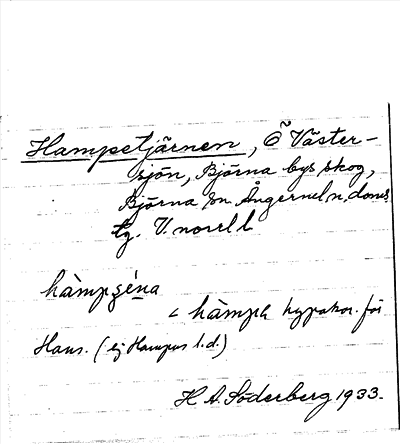 Hampetjärnen, Ö Väster-
sjön, Björna bys skog,
Björna sn Ångermel n. doms
tg. V. norrl l
hàmpgéna
< hàmpa hypokor. för
Hans. (ej Hampus l.d.)
H A. Söderberg 1933.